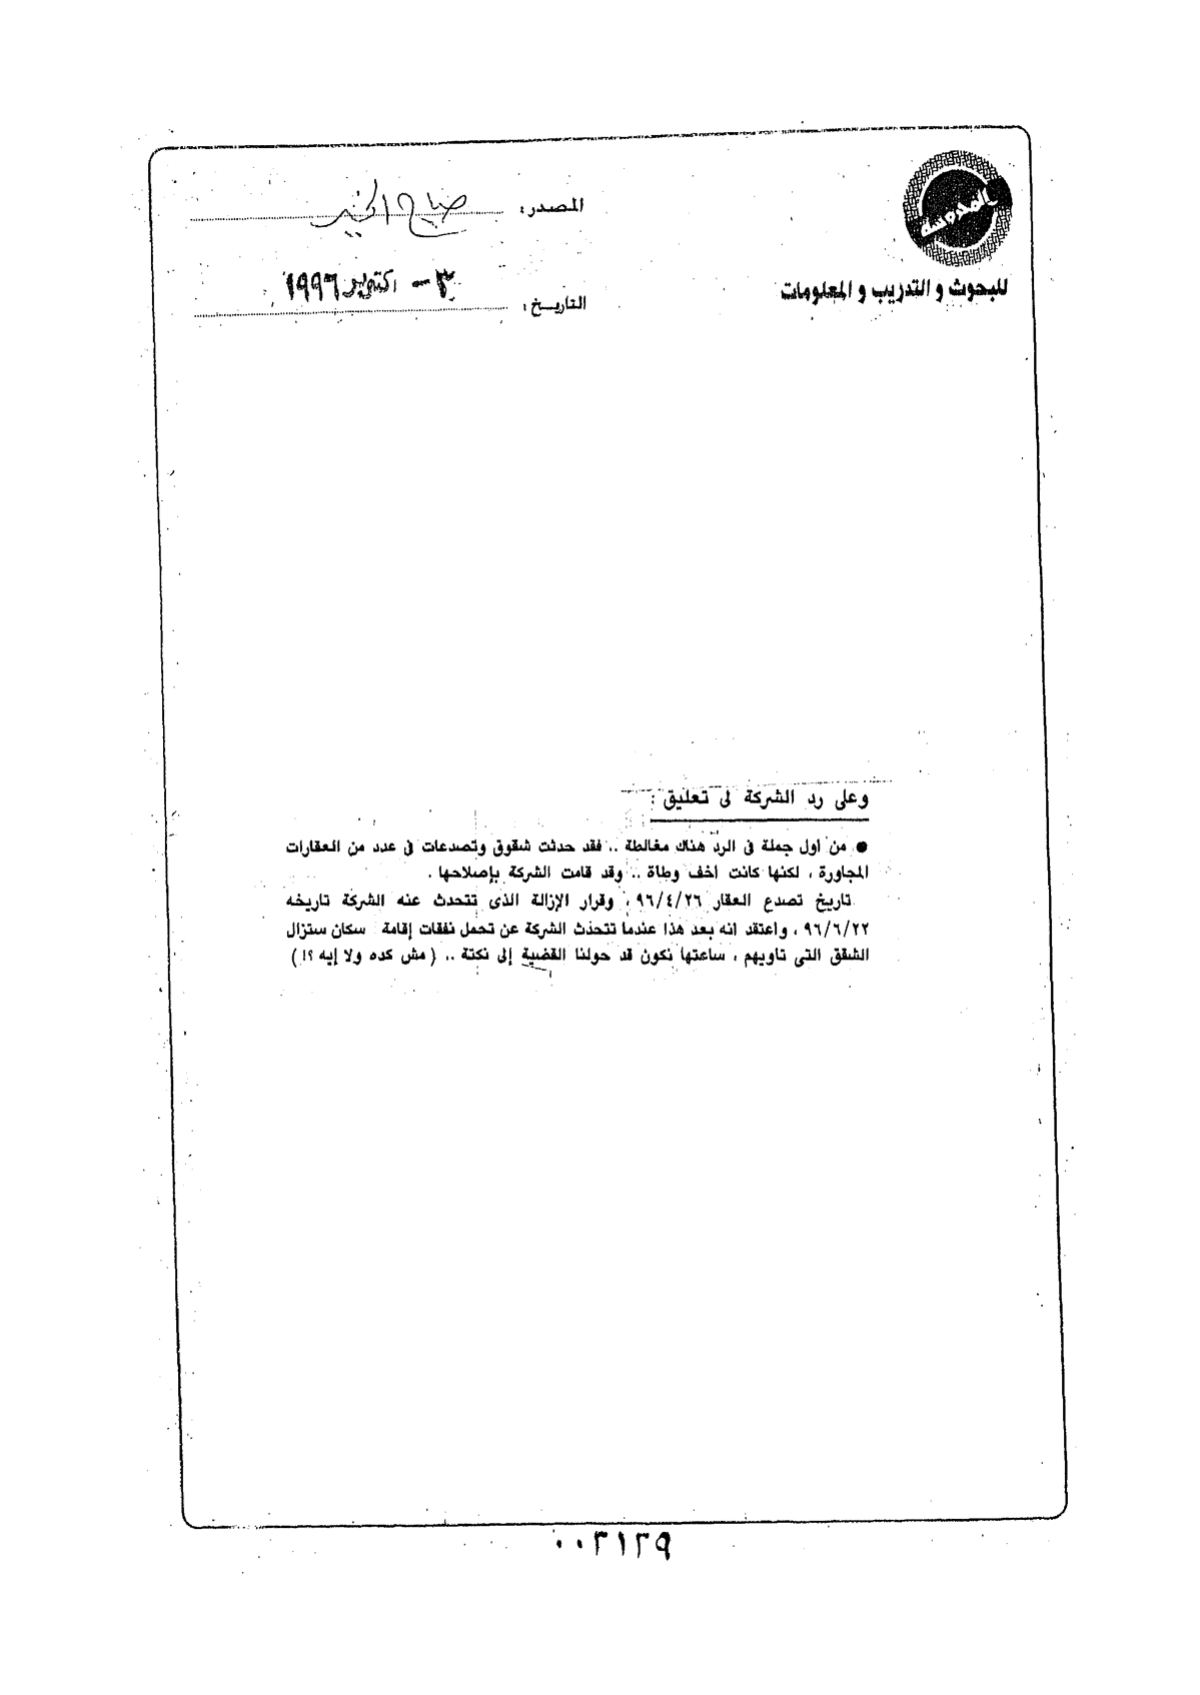 المصدر: صباح الخير
التاريخ: ٣ - اكتوبر ١٩٩٦
للبحوث و التدريب و المعلومات
وعلى رد الشركة لى تعليق :
● من أول جملة فى الرد هناك مغالطة .. فقد حدثت شقوق وتصدعات فى عدد من العقارات
المجاورة ، لكنها كانت أخف وطأة .. وقد قامت الشركة بإصلاحها .
تاريخ تصدع العقار ٩٦/٤/٢٦ ، وقرار الإزالة الذى تتحدث عنه الشركة تاريخه
٩٦/٦/٢٢ ، واعتقد انه بعد هذا عندما تتحدث الشركة عن تحمل نفقات إقامة سكان ستزال
الشقق التى تاويهم ، ساعتها نكون قد حولنا القضية إلى نكتة .. ( مش كده ولا إيه ؟! )